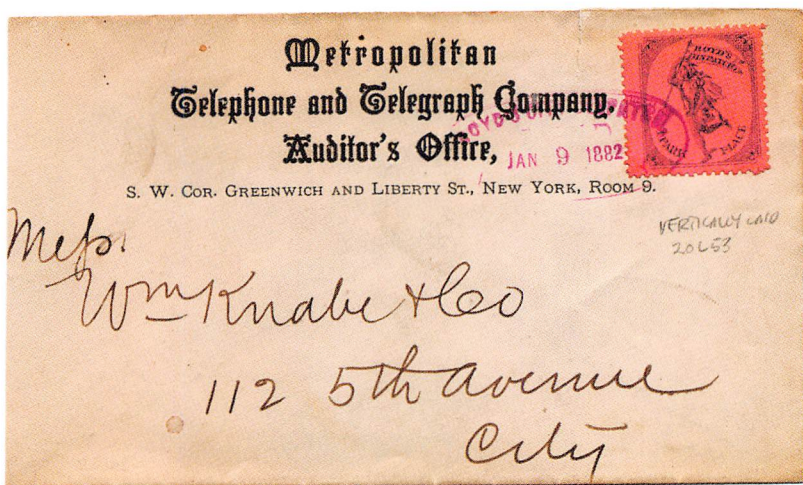 Metropolitan
Telephone and Telegraph Company.
Auditor's Office,
S. W. Cor. Greenwich and Liberty St., New York, Room 9.
BOYD'S
DISPATCH
PARK PLACE
JAN 9 1882
VERTICALLY LAID
20L53
Mess.
Wm Knabe & Co
112 5th Avenue
City